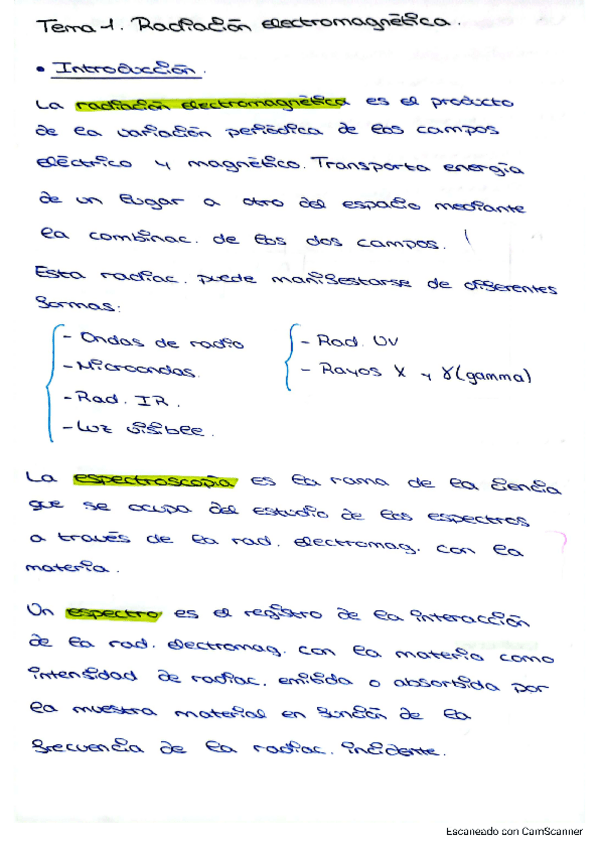 Tema 1. Radiación electromagnética.
• Introducción.
La radiación electromagnética es el producto
de la variación periódica de los campos
eléctrico y magnético. Transporta energía
de un lugar a otro del espacio mediante
la combinac. de los dos campos.
Esta radiac. puede manifestarse de diferentes
formas:
- Ondas de radio
- Microondas.
- Rad. IR.
- Luz visible.
- Rad. UV
- Rayos X y γ (gamma)
La espectroscopía es la rama de la ciencia
que se ocupa del estudio de los espectros
a través de la rad. electromag. con la
materia.
Un espectro es el registro de la interacción
de la rad. electromag. con la materia como
intensidad de radiac. emitida o absorbida por
la muestra material en función de la
frecuencia de la radiac. incidente.
Escaneado con CamScanner